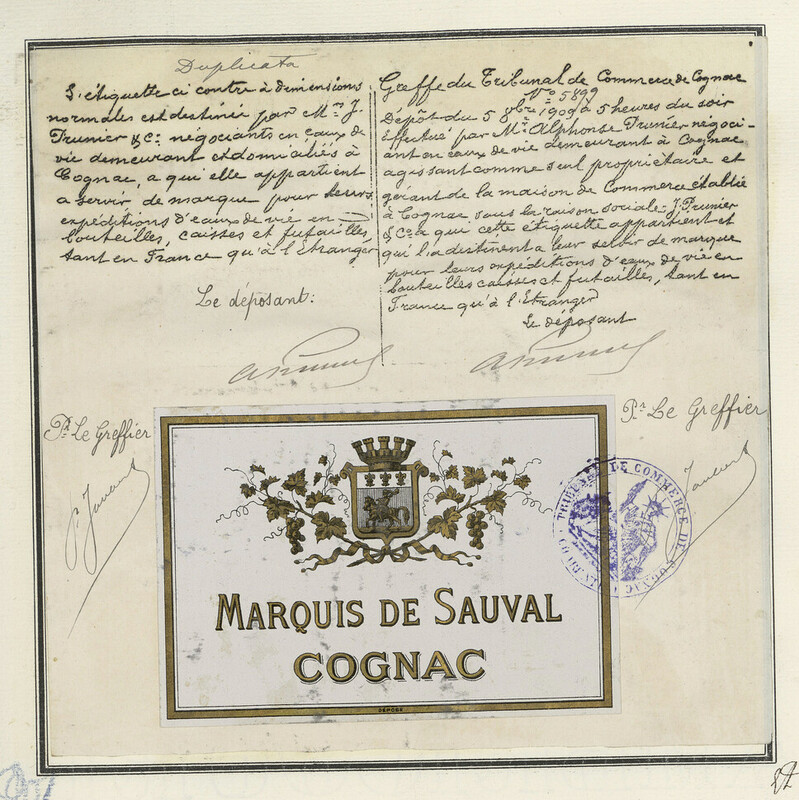 Duplicata
L'étiquette ci contre à dimensions
normales est destinée par Mrs J.
Prunier & Cie négociants en eaux de
vie demeurant et domiciliés à
Cognac, a qui elle appartient
a servir de marque pour leurs
expéditions d'eaux de vie en
bouteilles, caisses et futailles,
tant en France qu'à l'Etranger
Le déposant:
Greffe du Tribunal de Commerce de Cognac
No 5899
Dépôt du 5 8bre 1909 à 5 heures du soir
Effectué par Mr Alphonse Prunier négoci-
ant en eaux de vie demeurant à Cognac
agissant comme seul propriétaire et
gérant de la maison de Commerce établie
à Cognac, sous la raison sociale J. Prunier
& Cie a qui cette étiquette appartient et
qui l'a destinent a leur servir de marque
pour leurs expéditions d'eaux de vie en
bouteilles caisses et futailles, tant en
France qu'à l'Etranger
Le déposant
Pr Le Greffier
Pr Le Greffier
TRIBUNAL DE COMMERCE DE COGNAC
MARQUIS DE SAUVAL
COGNAC
DÉPOSÉ